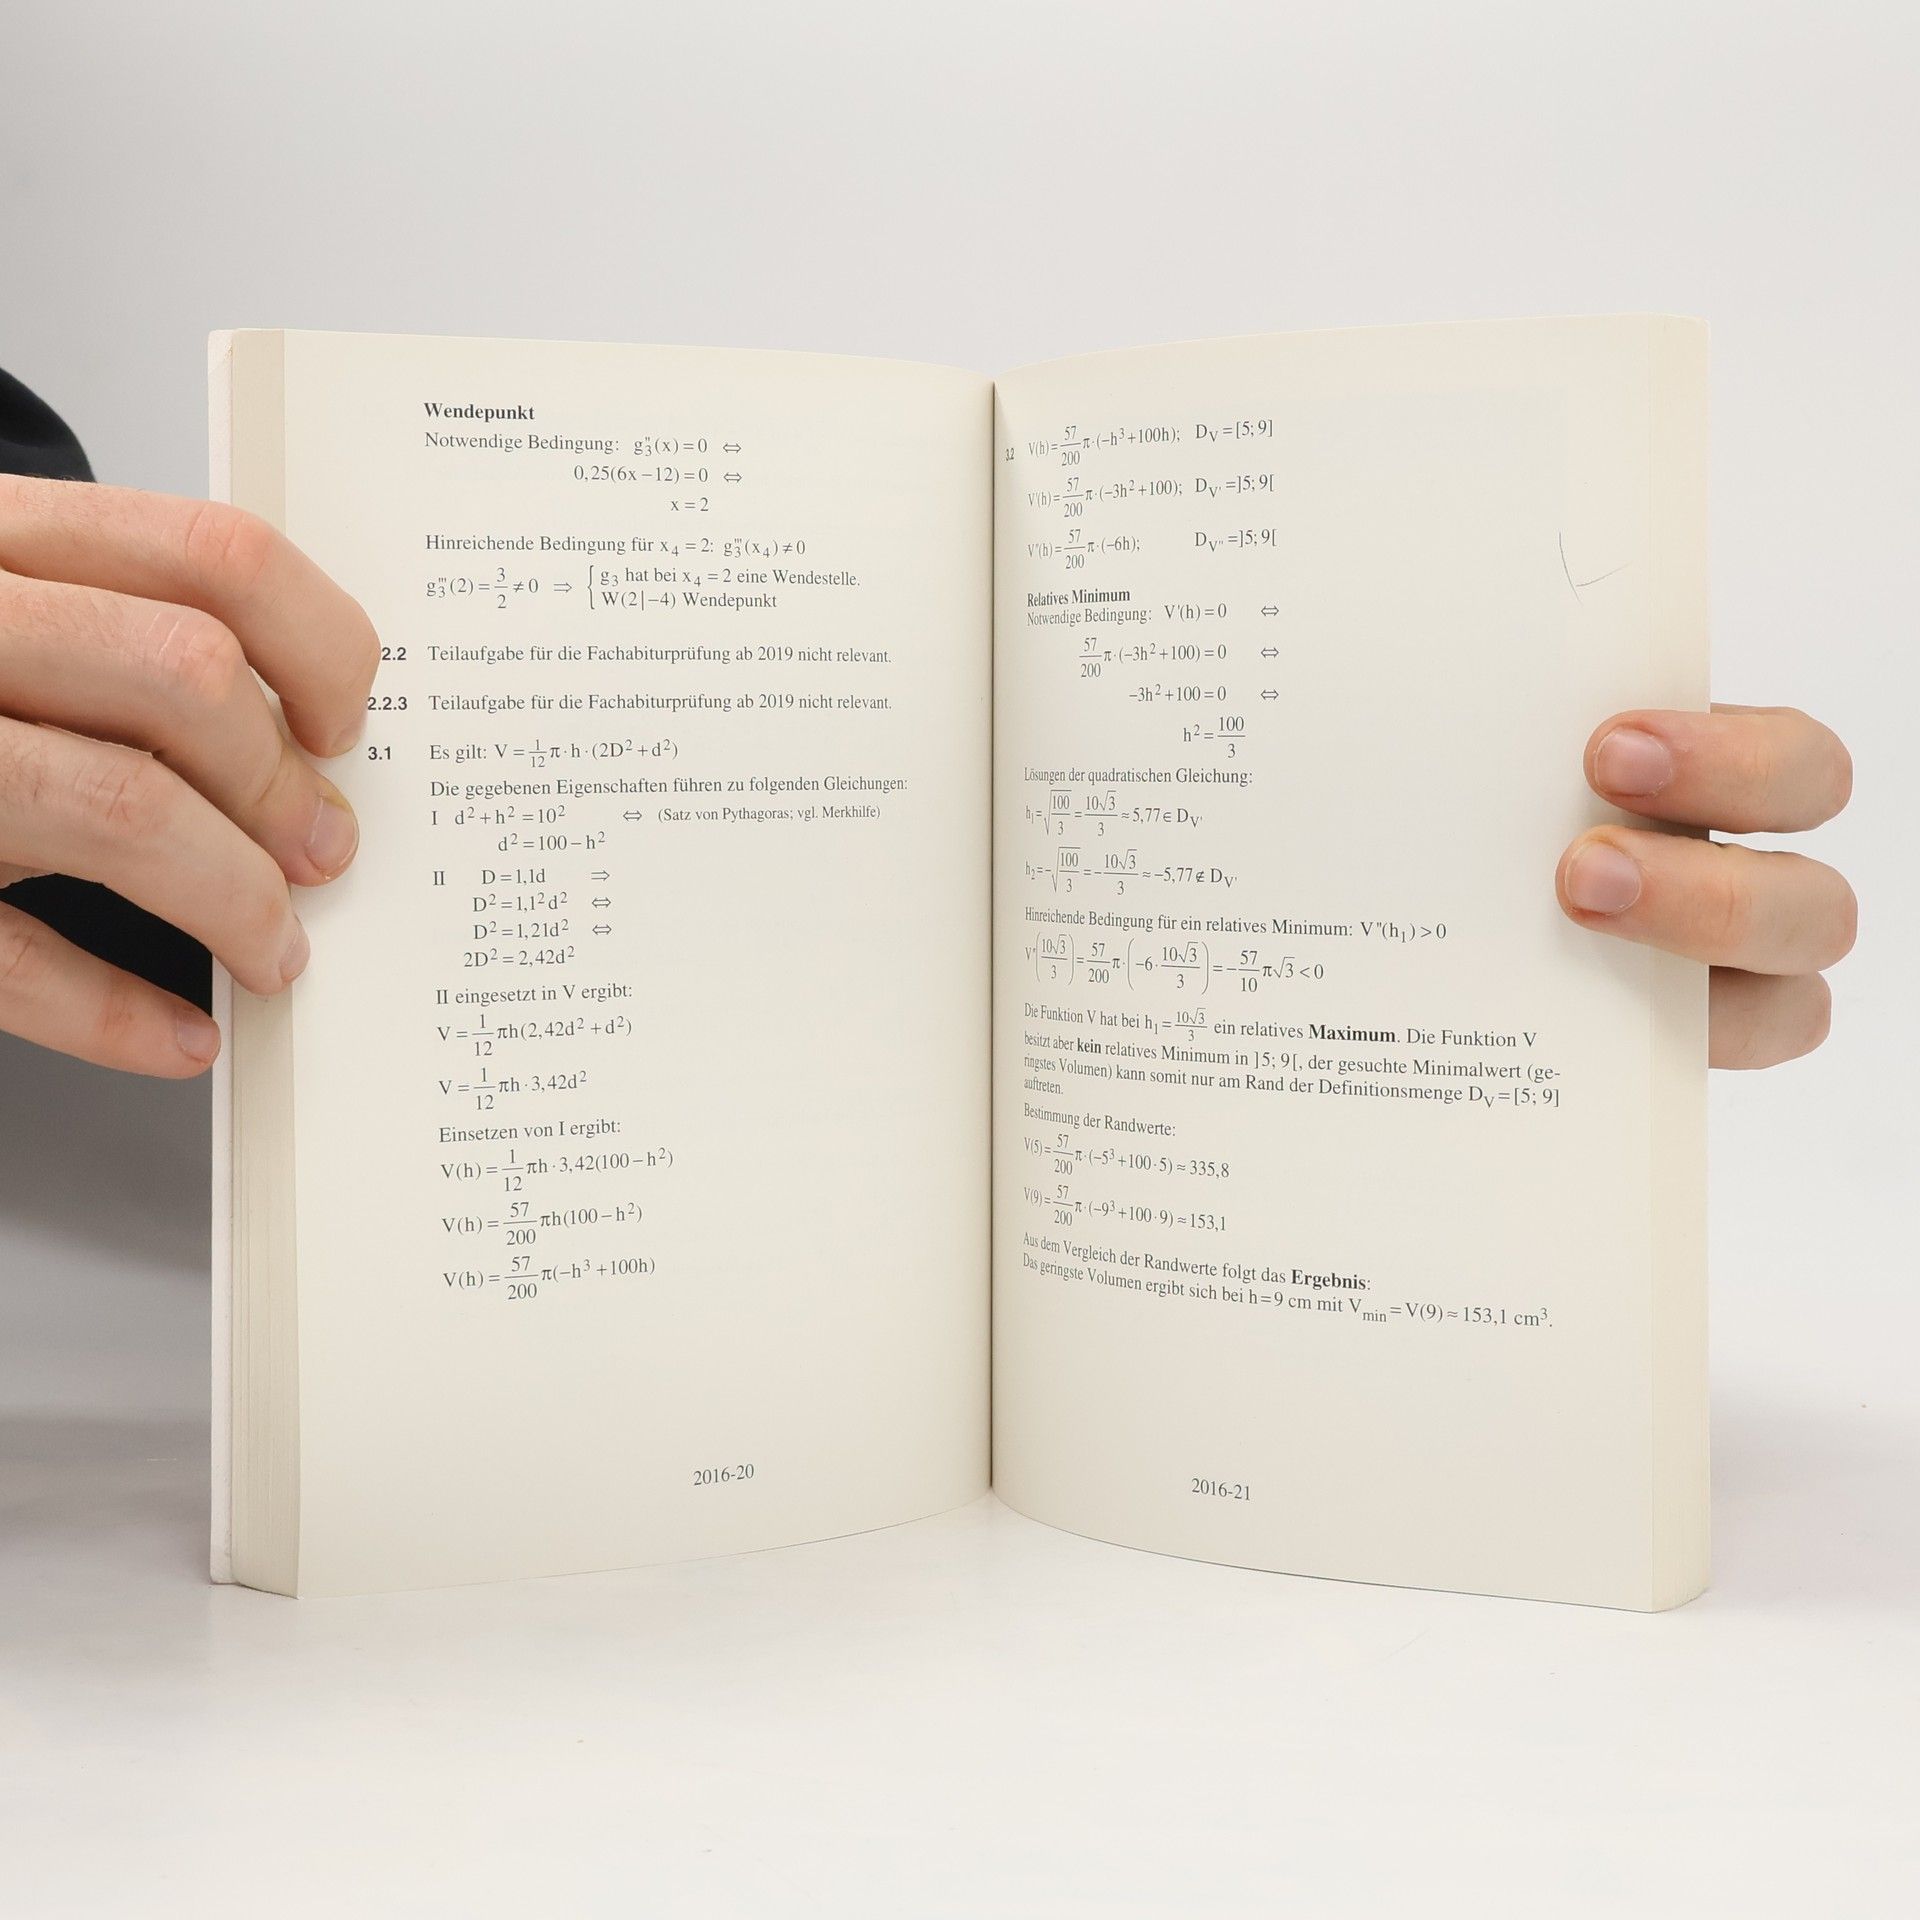 Wendepunkt
Notwendige Bedingung: g₃"(x) = 0 ⇔
0,25(6x − 12) = 0 ⇔
x = 2
Hinreichende Bedingung für x₄ = 2: g₃'''(x₄) ≠ 0
g₃'''(2) = 3/2 ≠ 0 ⇒ { g₃ hat bei x₄ = 2 eine Wendestelle.
W(2|−4) Wendepunkt
2.2 Teilaufgabe für die Fachabiturprüfung ab 2019 nicht relevant.
2.2.3 Teilaufgabe für die Fachabiturprüfung ab 2019 nicht relevant.
3.1 Es gilt: V = 1/12 π · h · (2D² + d²)
Die gegebenen Eigenschaften führen zu folgenden Gleichungen:
I d² + h² = 10² ⇔ (Satz von Pythagoras; vgl. Merkhilfe)
d² = 100 − h²
II D = 1,1d ⇒
D² = 1,1² d² ⇔
D² = 1,21d² ⇔
2D² = 2,42d²
II eingesetzt in V ergibt:
V = 1/12 πh(2,42d² + d²)
V = 1/12 πh · 3,42d²
Einsetzen von I ergibt:
V(h) = 1/12 πh · 3,42(100 − h²)
V(h) = 57/200 πh(100 − h²)
V(h) = 57/200 π(−h³ + 100h)
2016-20
3.2 V(h) = 57/200 π · (−h³ + 100h); D_V = [5; 9]
V'(h) = 57/200 π · (−3h² + 100); D_V' = ]5; 9[
V"(h) = 57/200 π · (−6h); D_V" = ]5; 9[
Relatives Minimum
Notwendige Bedingung: V'(h) = 0 ⇔
57/200 π · (−3h² + 100) = 0 ⇔
−3h² + 100 = 0 ⇔
h² = 100/3
Lösungen der quadratischen Gleichung:
h₁ = √(100/3) = 10√3/3 ≈ 5,77 ∈ D_V'
h₂ = −√(100/3) = −10√3/3 ≈ −5,77 ∉ D_V'
Hinreichende Bedingung für ein relatives Minimum: V"(h₁) > 0
V"(10√3/3) = 57/200 π · (−6 · 10√3/3) = −57/10 π√3 < 0
Die Funktion V hat bei h₁ = 10√3/3 ein relatives Maximum. Die Funktion V
besitzt aber kein relatives Minimum in ]5; 9[, der gesuchte Minimalwert (ge-
ringstes Volumen) kann somit nur am Rand der Definitionsmenge D_V = [5; 9]
auftreten.
Bestimmung der Randwerte:
V(5) = 57/200 π · (−5³ + 100 · 5) ≈ 335,8
V(9) = 57/200 π · (−9³ + 100 · 9) ≈ 153,1
Aus dem Vergleich der Randwerte folgt das Ergebnis:
Das geringste Volumen ergibt sich bei h = 9 cm mit V_min = V(9) ≈ 153,1 cm³.
2016-21